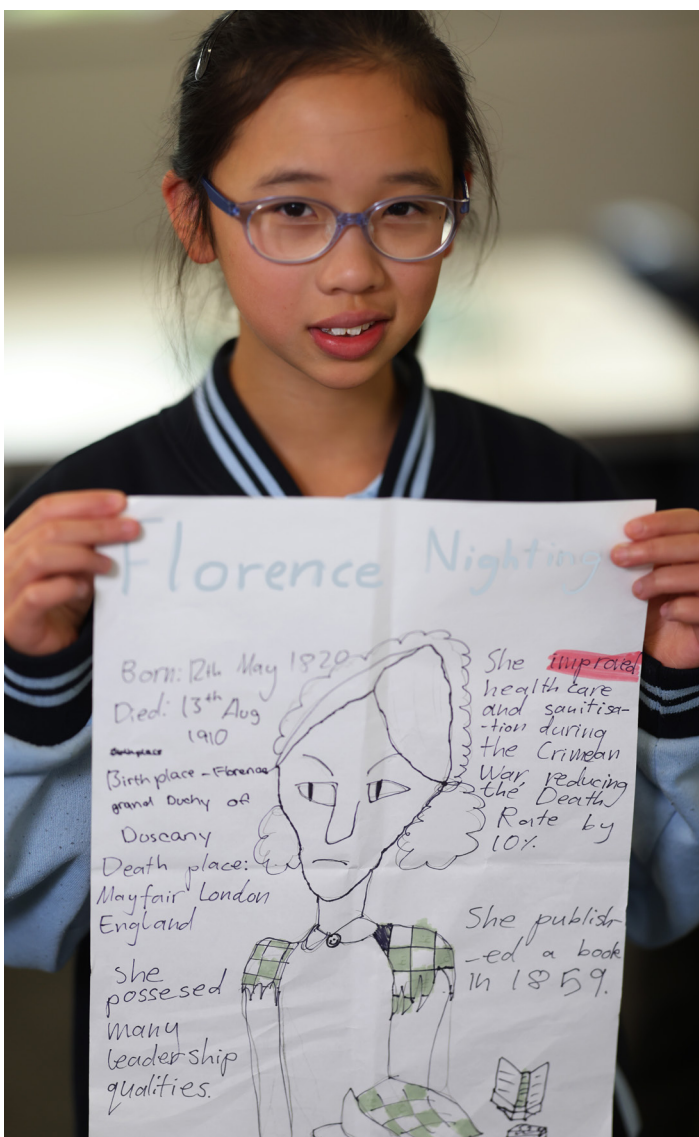 Florence Nighting
Born: 12th May 1820
Died: 13th Aug
1910
Birthplace
Birthplace - Florence
grand Duchy of
Duscany
Death place:
Mayfair London
England
she
possesed
many
leadership
qualities.
She improved
healthcare
and sanitisa-
-tion during
the Crimean
War, reducing
the Death
Rate by
10%.
She publish-
-ed a book
in 1859.